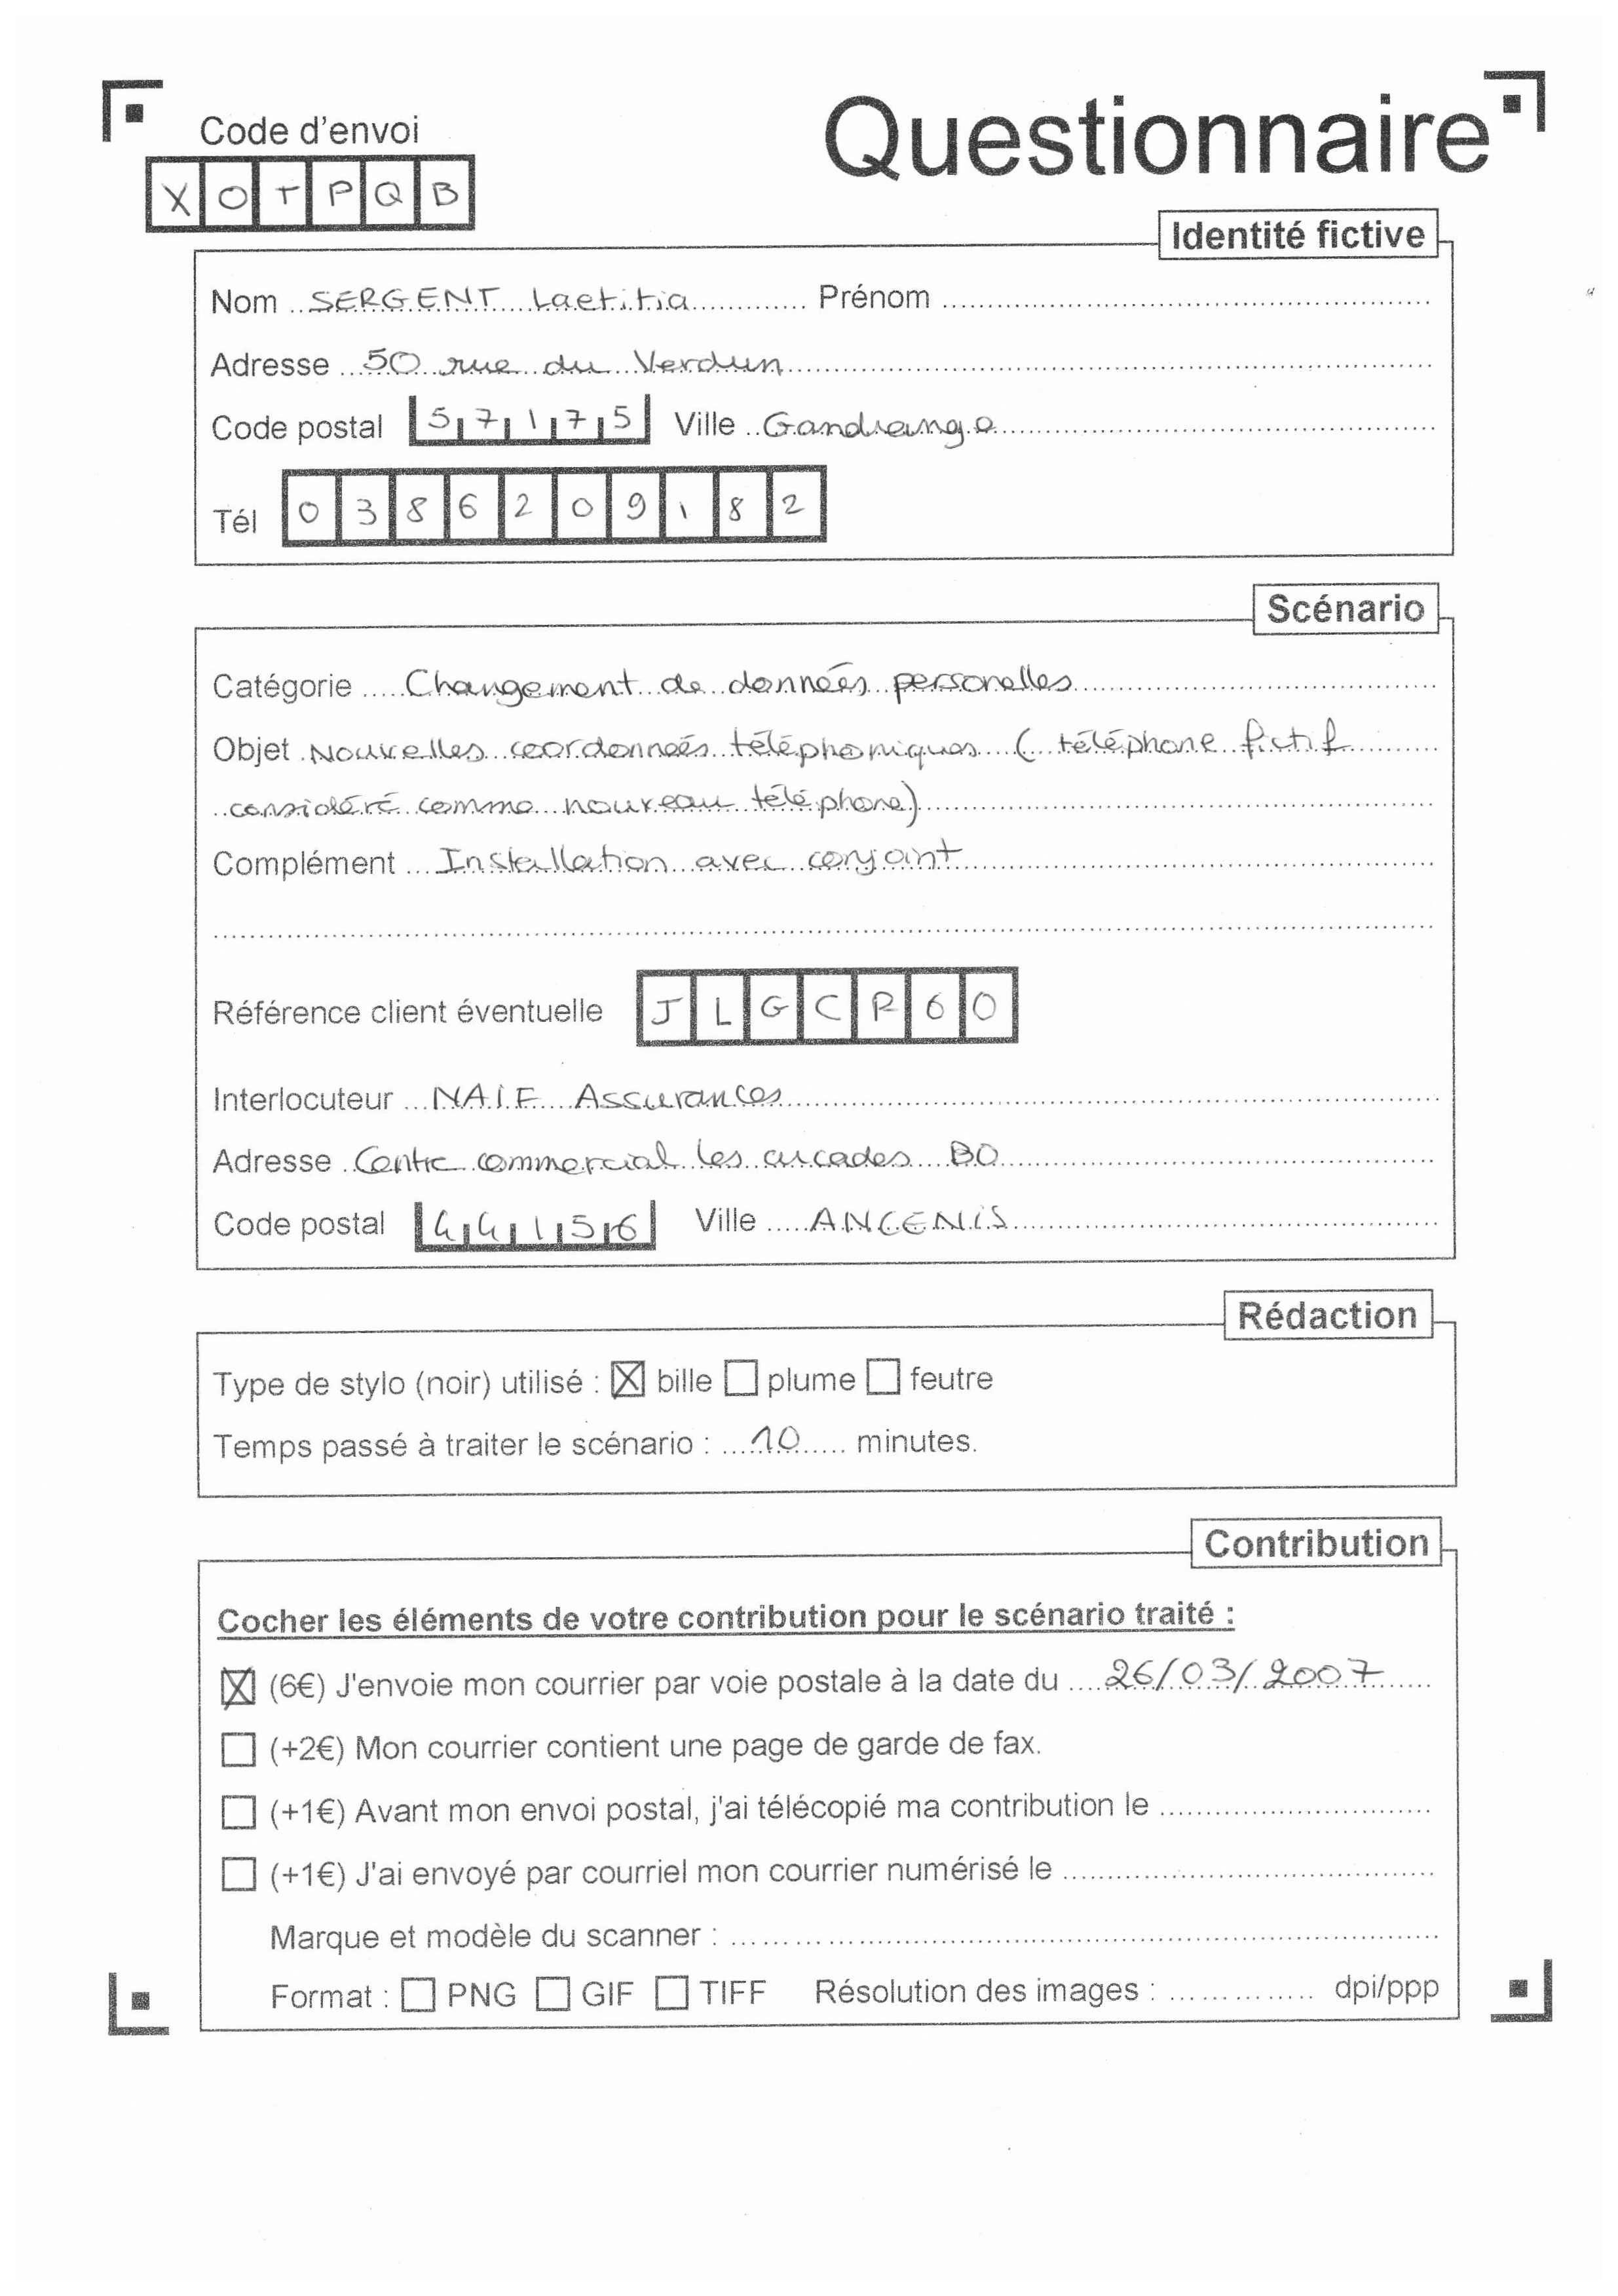 Code d'envoi
Questionnaire
XOTPQB
Identité fictive
Nom SERGENT Laetitia Prénom
Adresse 50 rue du Verdun
Code postal 57175 Ville Gandrange
Tél 0386209182
Scénario
Catégorie Changement de données personelles
Objet Nouvelles coordonneés téléphoniques (téléphone fictif
considéré comme nouveau téléphone)
Complément Installation avec conjoint
Référence client éventuelle JLGCR60
Interlocuteur NAIF Assurances
Adresse Centre commercial les arcades BO
Code postal 44156 Ville ANCENIS
Rédaction
Type de stylo (noir) utilisé : ☒ bille ☐ plume ☐ feutre
Temps passé à traiter le scénario : 10 minutes.
Contribution
Cocher les éléments de votre contribution pour le scénario traité :
☒ (6€) J'envoie mon courrier par voie postale à la date du 26/03/2007
☐ (+2€) Mon courrier contient une page de garde de fax.
☐ (+1€) Avant mon envoi postal, j'ai télécopié ma contribution le
☐ (+1€) J'ai envoyé par courriel mon courrier numérisé le
Marque et modèle du scanner :
Format : ☐ PNG ☐ GIF ☐ TIFF Résolution des images : dpi/ppp